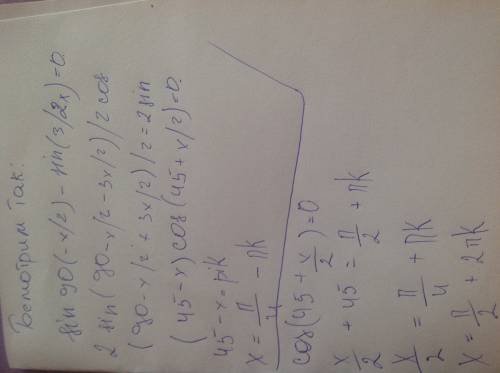 Посмотрим так:
sin 90(-x/2) - sin(3/2x)=0
2 sin(90-x/2-3x/2)/2 cos
(90-x/2+3x/2)/2=2sin
(45-x)cos(45+x/2)=0.
45-x=pik
x=π/4-πk
cos(45+x/2)=0
x/2+45=π/2+πk
x/2=π/4+πk
x=π/2+2πk